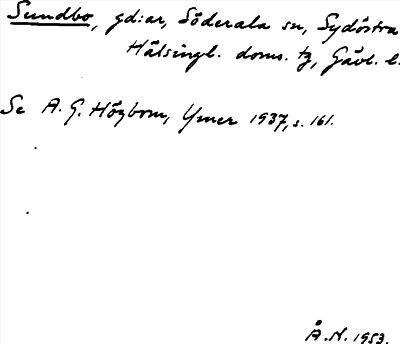 Sundbo, gd:ar, Söderala sn, Sydöstra
Hälsingl. doms. tg, Gävl. l.
Se A. G. Högbom, Ymer 1937, s. 161.
Å.N. 1953.